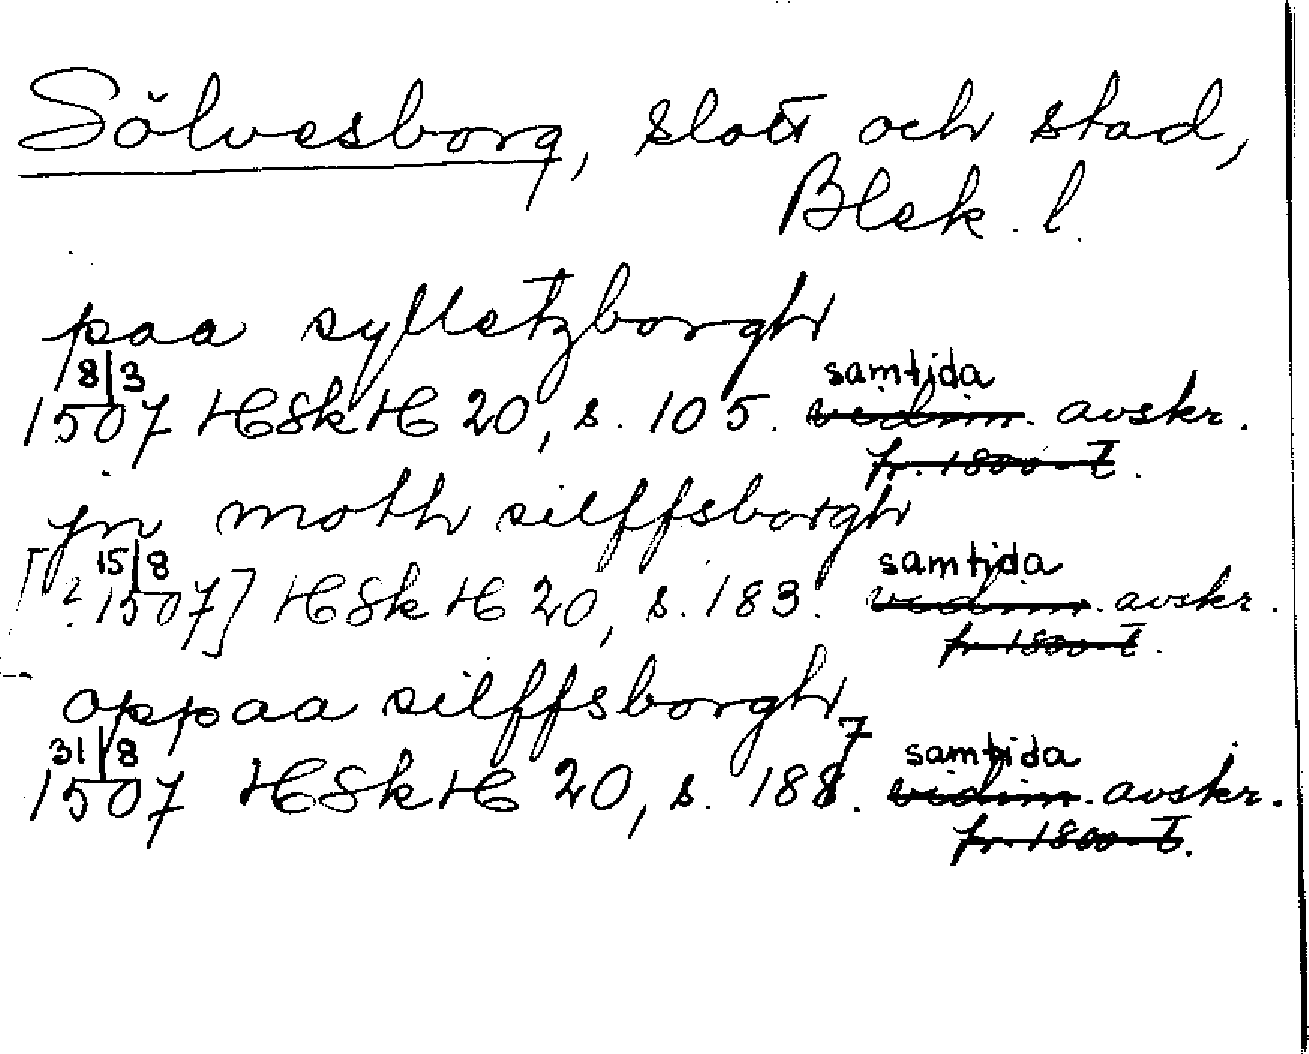 Sölvesborg, slott och stad,
Blek. l.
paa sylletzborgh
8/3 samtida
1507 HSkH 20, s. 105. vidim. avskr.
fr. 1800-t.
jn moth silffsborgh
15/8 samtida
[? 1507] HSkH 20, s. 183. vidim. avskr.
fr. 1800-t.
oppaa silffsborgh
31/8 7 samtida
1507 HSkH 20, s. 188. vidim. avskr.
fr. 1800-t.